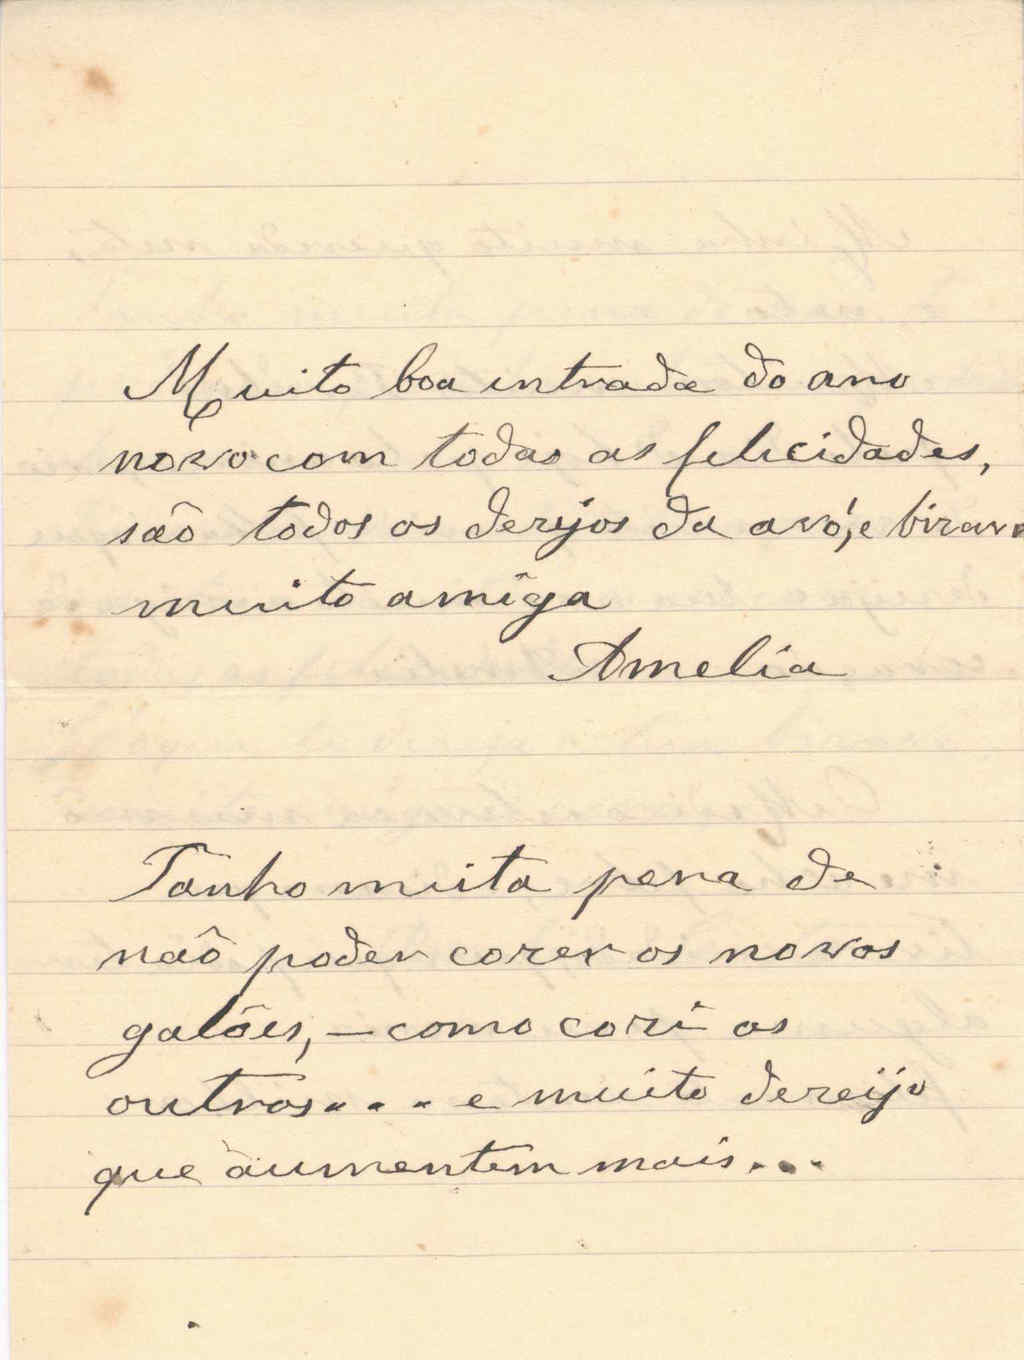 Muito boa entrada do ano
novo com todas as felicidades,
são todos os desejos da avó, e bizavo
muito amiga
Amelia
Tanho muita pena de
não poder cozer os novos
galões, – como cozi os
outros.... e muito dezeijo
que aumentem mais...